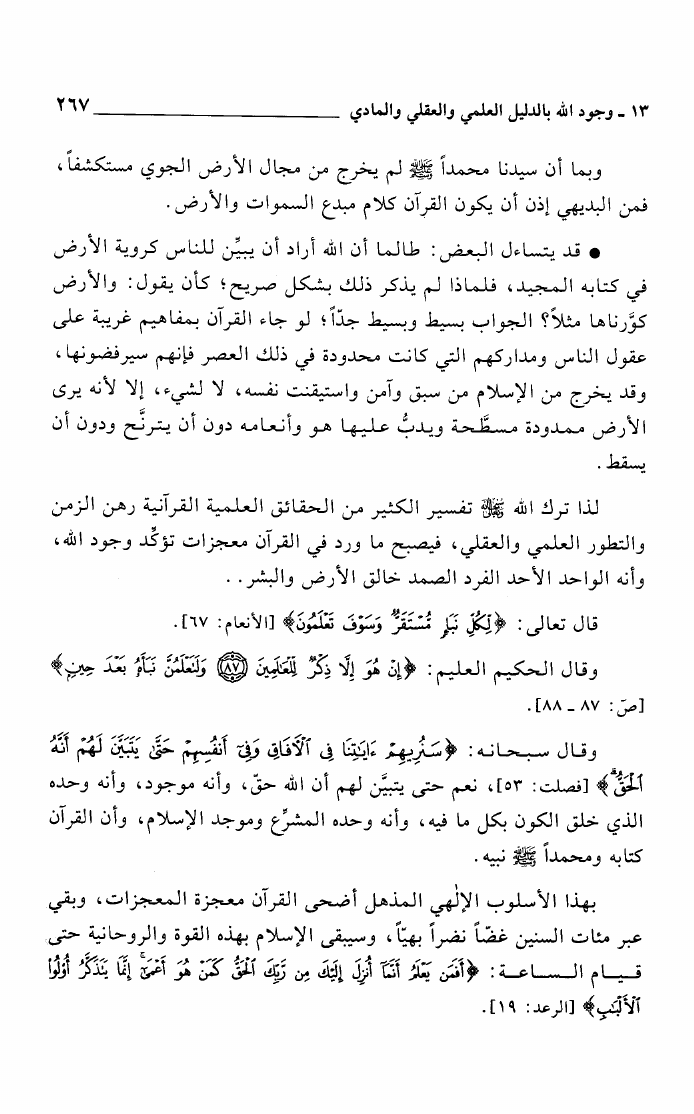 ١٣ ـ وجود الله بالدليل العلمي والعقلي والمادي ٢٦٧
وبما أن سيدنا محمداً ﷺ لم يخرج من مجال الأرض الجوي مستكشفاً،
فمن البديهي إذن أن يكون القرآن كلام مبدع السموات والأرض.
● قد يتساءل البعض: طالما أن الله أراد أن يبيِّن للناس كروية الأرض
في كتابه المجيد، فلماذا لم يذكر ذلك بشكل صريح؛ كأن يقول: والأرض
كوَّرناها مثلاً؟ الجواب بسيط وبسيط جدّاً؛ لو جاء القرآن بمفاهيم غريبة على
عقول الناس ومداركهم التي كانت محدودة في ذلك العصر فإنهم سيرفضونها،
وقد يخرج من الإسلام من سبق وآمن واستيقنت نفسه، لا لشيء، إلا لأنه يرى
الأرض ممدودة مسطَّحة ويدبُّ عليها هو وأنعامه دون أن يترنَّح ودون أن
يسقط.
لذا ترك الله ﷻ تفسير الكثير من الحقائق العلمية القرآنية رهن الزمن
والتطور العلمي والعقلي، فيصبح ما ورد في القرآن معجزات تؤكِّد وجود الله،
وأنه الواحد الأحد الفرد الصمد خالق الأرض والبشر..
قال تعالى: ﴿لِكُلِّ نَبَإٍ مُّسْتَقَرٌّ وَسَوْفَ تَعْلَمُونَ﴾ [الأنعام: ٦٧].
وقال الحكيم العليم: ﴿إِنْ هُوَ إِلَّا ذِكْرٌ لِّلْعَالَمِينَ ۝٨٧ وَلَتَعْلَمُنَّ نَبَأَهُ بَعْدَ حِينٍ﴾
[صَ: ٨٧ ـ ٨٨].
وقال سبحانه: ﴿سَنُرِيهِمْ ءَايَٰتِنَا فِى ٱلْأَفَاقِ وَفِىٓ أَنفُسِهِمْ حَتَّىٰ يَتَبَيَّنَ لَهُمْ أَنَّهُ
ٱلْحَقُّ﴾ [فصلت: ٥٣]، نعم حتى يتبيَّن لهم أن الله حقّ، وأنه موجود، وأنه وحده
الذي خلق الكون بكل ما فيه، وأنه وحده المشرِّع وموجد الإسلام، وأن القرآن
كتابه ومحمداً ﷺ نبيه.
بهذا الأسلوب الإلٰهي المذهل أضحى القرآن معجزة المعجزات، وبقي
عبر مئات السنين غضّاً نضراً بهيّاً، وسيبقى الإسلام بهذه القوة والروحانية حتى
قيام الساعة: ﴿أَفَمَن يَعْلَمُ أَنَّمَآ أُنزِلَ إِلَيْكَ مِن رَّبِّكَ ٱلْحَقُّ كَمَنْ هُوَ أَعْمَىٰٓ ۚ إِنَّمَا يَتَذَكَّرُ أُوْلُوا۟
ٱلْأَلْبَٰبِ﴾ [الرعد: ١٩].